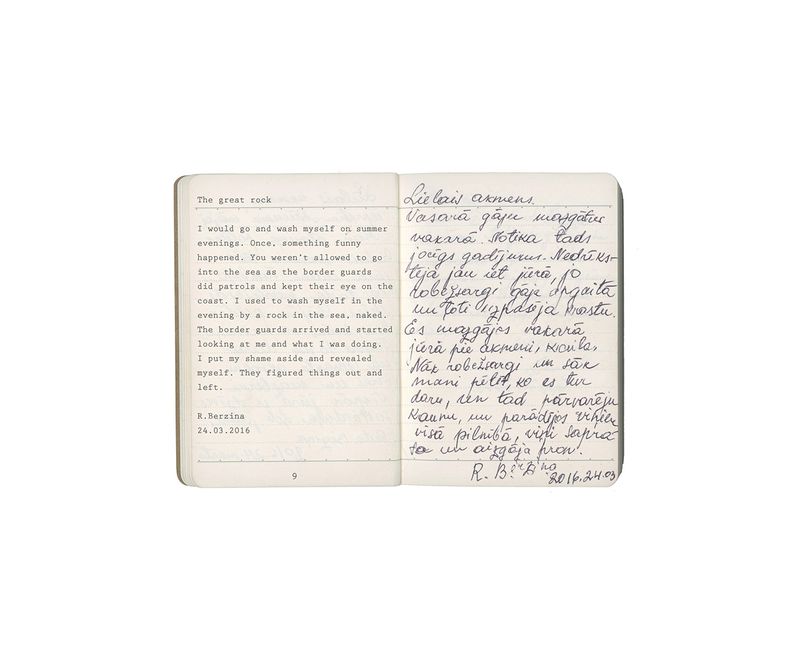 The great rock
I would go and wash myself on summer
evenings. Once, something funny
happened. You weren't allowed to go
into the sea as the border guards
did patrols and kept their eye on the
coast. I used to wash myself in the
evening by a rock in the sea, naked.
The border guards arrived and started
looking at me and what I was doing.
I put my shame aside and revealed
myself. They figured things out and
left.
R.Berzina
24.03.2016
9
Lielais akmens.
Vasarā gāju mazgāties
vakarā. Notika tāds
jocīgs gadījums. Nedrīks-
tēja jau iet jūrā, jo
robežsargi gāja apgaitā
un ļoti izpasēja krastu.
Es mazgājos vakarā
jūrā pie akmeni, kaila.
Nāk robežsargi un sāk
mani pētīt, ko es tur
daru, un tad pārvarēju
kaunu, un parādījos viņiem
visā pilnībā, viņi sapra-
ta un aizgāja prom.
R. Bērziņa
2016.24.03